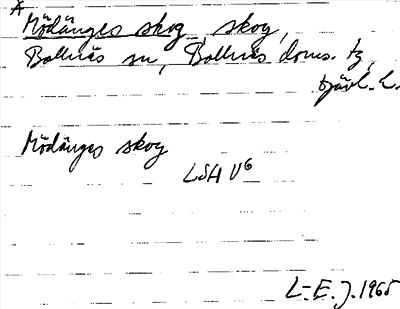 * Mödänges skog, skog,
Bollnäs sn, Bollnäs doms. tg,
Gävl. l.
Mödänges skog
LSH V6
L-E. J. 1965